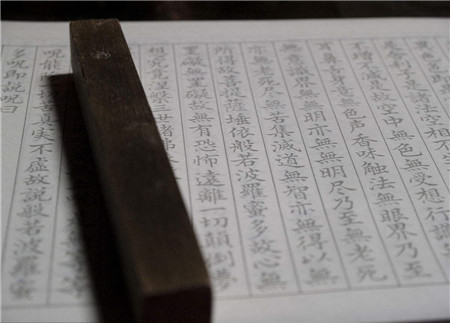 是舎利子是諸法空相不
不増不減是故空中無色無受想行
耳鼻舌身意無色声香味触法無眼界乃至
無意識界無無明亦無無明尽乃至無老死
亦無老死尽無苦集滅道無智亦無得以無
所得故菩提薩埵依般若波羅蜜多故心無
罣礙無罣礙故無有恐怖遠離一切顛倒夢
想究竟涅槃三世諸佛
呪能除 真実不虚故説般若波羅蜜
多呪即説呪曰